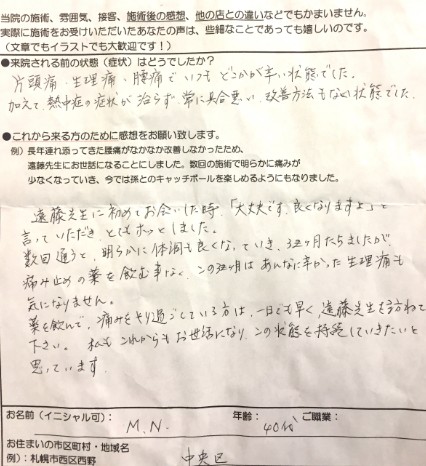 当院の施術、雰囲気、接客、施術後の感想、他の店との違いなどでもかまいません。
実際に施術をお受けいただいたあなたの声は、些細なことであっても嬉しいのです。
(文章でもイラストでも大歓迎です!)
●来院される前の状態(症状)はどうでしたか?
片頭痛・生理痛・腰痛でいつもどこかが辛い状態でした。
加えて、熱中症の症状が治らず、常に具合悪い、改善方法もない状態でした。
●これから来る方のために感想をお願い致します。
例)長年連れ添ってきた腰痛がなかなか改善しなかったため、
遠藤先生にお世話になることにしました。数回の施術で明らかに痛みが
少なくなっていき、今では孫とのキャッチボールを楽しめるようにもなりました。
遠藤先生に初めてお会いした時、「大丈夫です、良くなりますよ」と
言っていただき、とてもホッとしました。
数回通うと、明らかに体調も良くなっていき、3ヶ月たちましたが
痛み止めの薬を飲む事なく、この3ヶ月はあんなに辛かった生理痛も
気になりません。
薬を飲んで、痛みをやり過ごしている方は、一日でも早く、遠藤先生を訪ねて
下さい。私もこれからもお世話になり、この状態を持続していきたいと
思っています。
お名前(イニシャル可): M.N. 年齢: 40代 ご職業:
お住まいの市区町村・地域名
例):札幌市西区西野 中央区